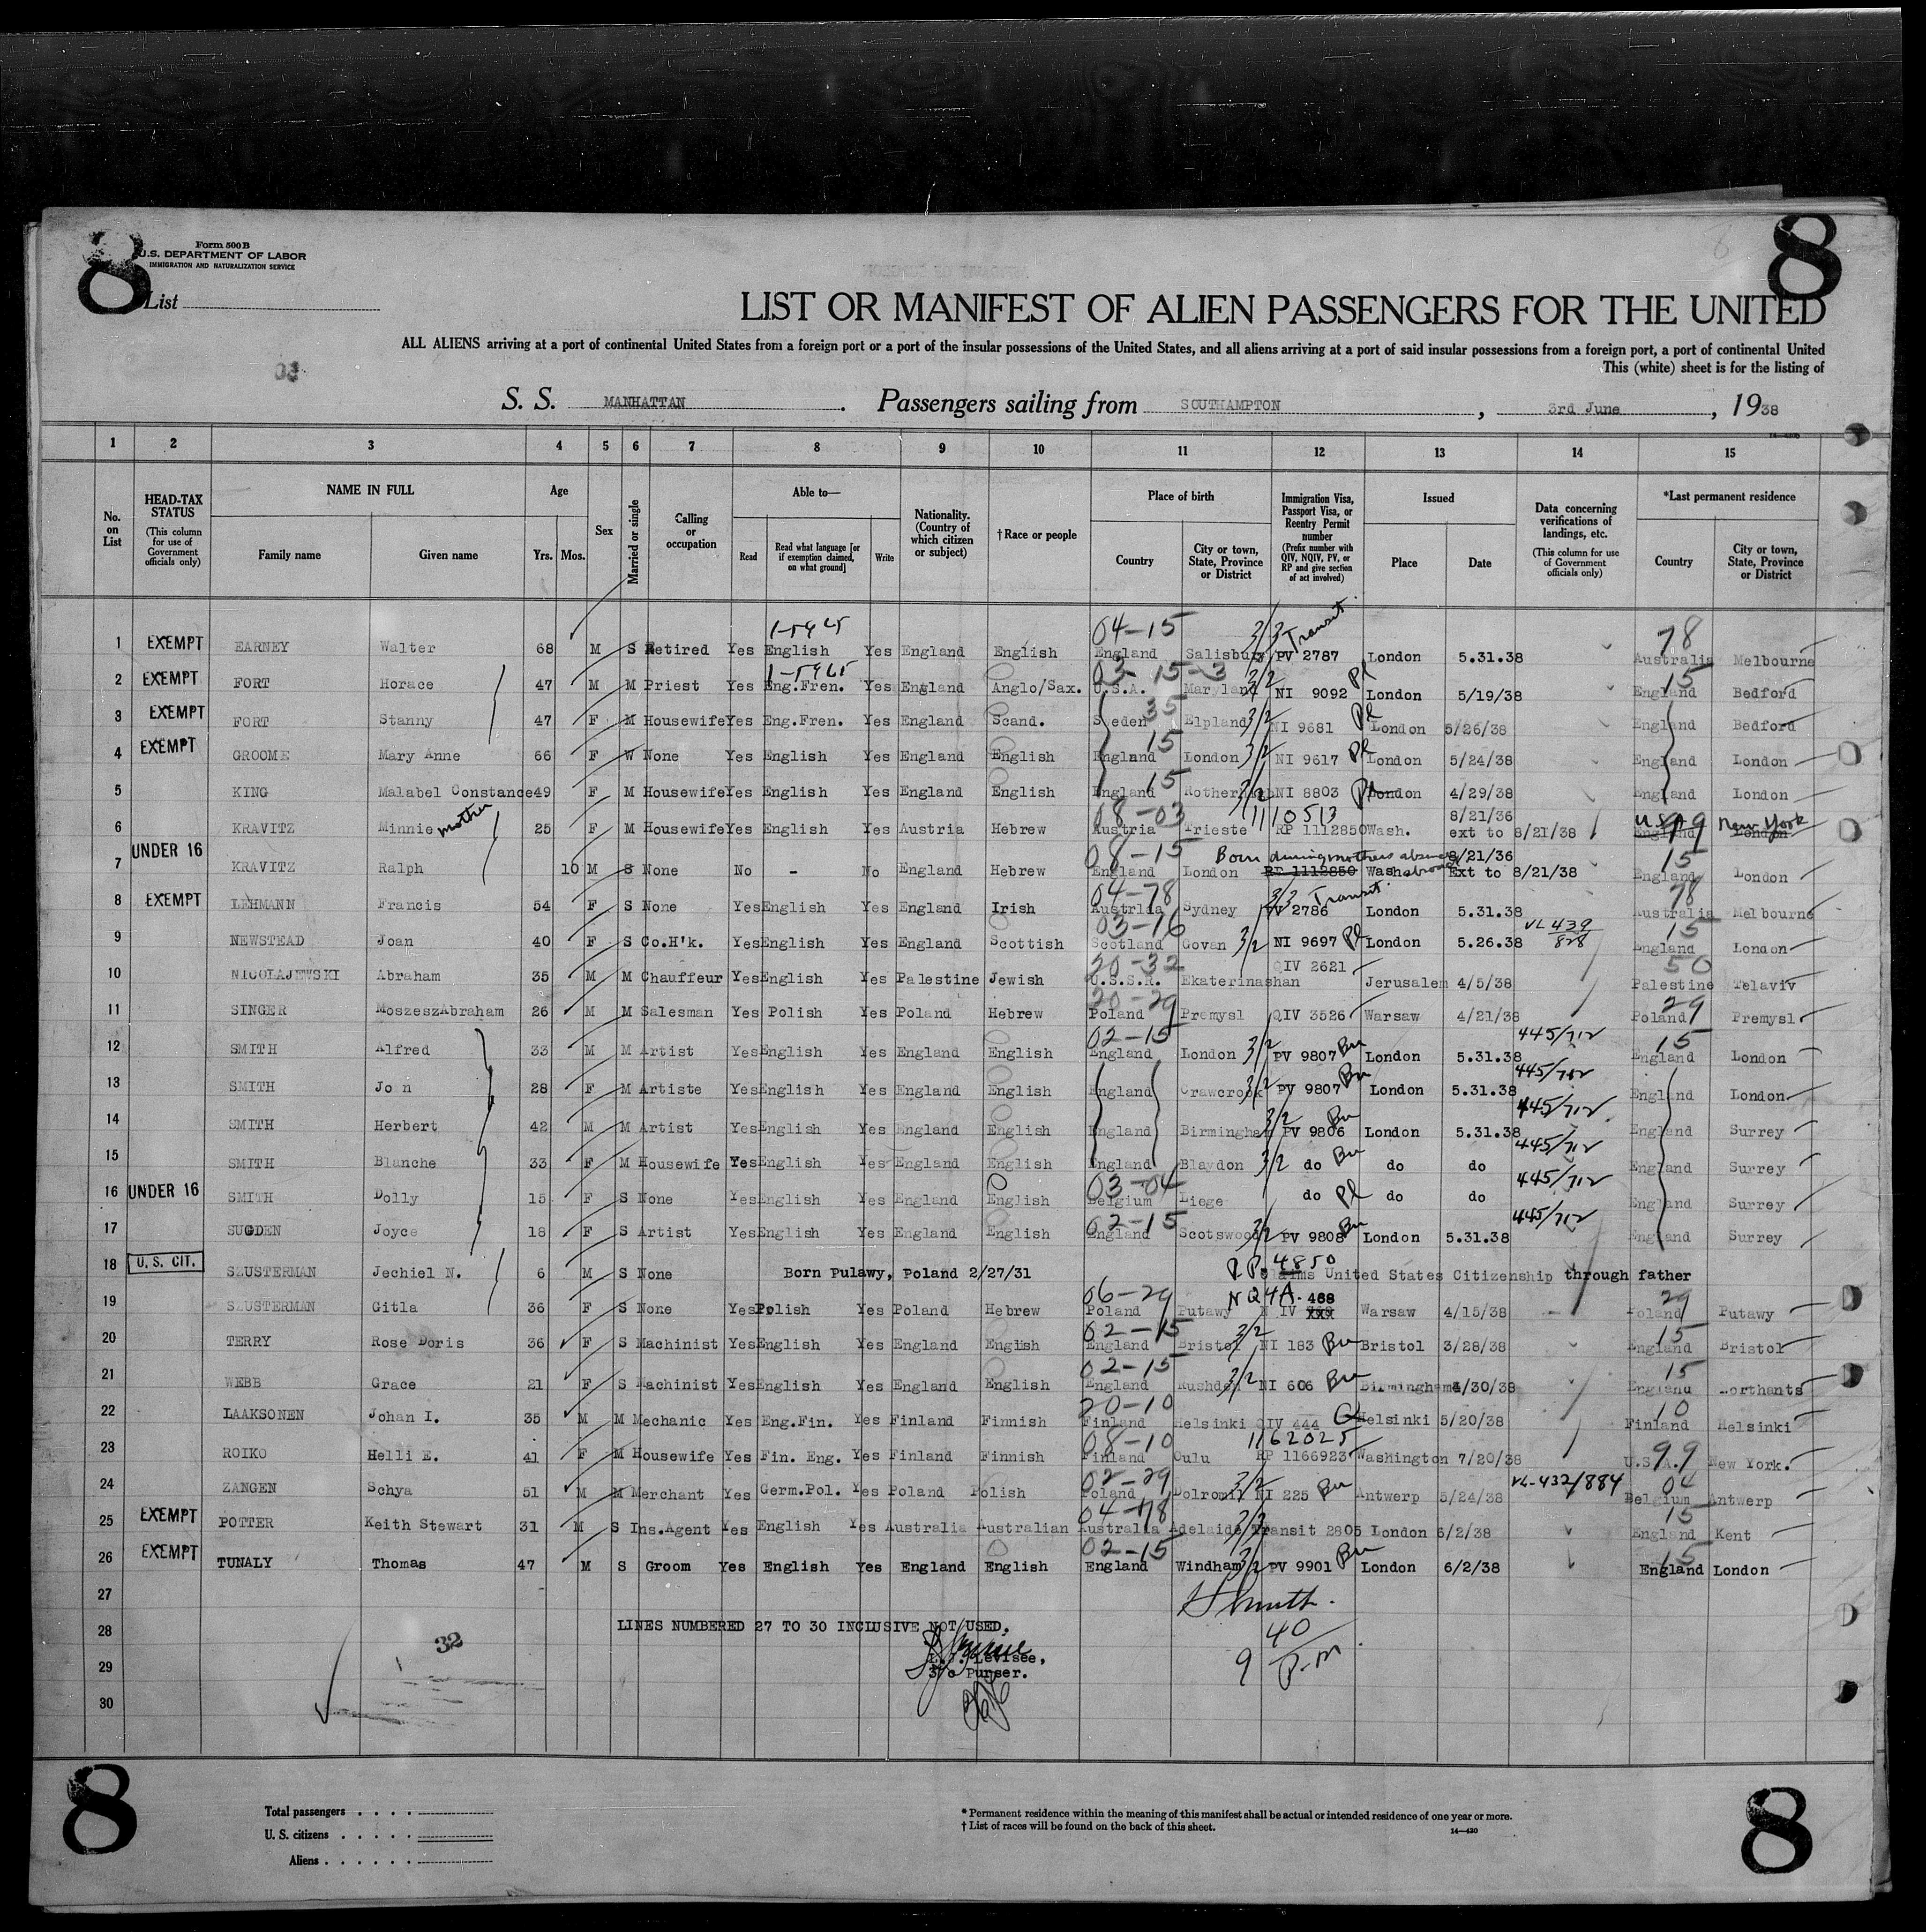 8
8
Form 500 B
U.S. DEPARTMENT OF LABOR
IMMIGRATION AND NATURALIZATION SERVICE
List
LIST OR MANIFEST OF ALIEN PASSENGERS FOR THE UNITED
ALL ALIENS arriving at a port of continental United States from a foreign port or a port of the insular possessions of the United States, and all aliens arriving at a port of said insular possessions from a foreign port, a port of continental United
This (white) sheet is for the listing of
03
S. S. MANHATTAN . Passengers sailing from SOUTHAMPTON , 3rd June , 1938
1 2 3 4 5 6 7 8 9 10 11 12 13 14 15
No. on List
HEAD-TAX STATUS (This column for use of Government officials only)
NAME IN FULL Family name Given name
Age Yrs. Mos.
Sex
Married or single
Calling or occupation
Able to— Read Read what language [or if exemption claimed, on what ground] Write
Nationality. (Country of which citizen or subject)
† Race or people
Place of birth Country City or town, State, Province or District
Immigration Visa, Passport Visa, or Reentry Permit number (Prefix number with QIV, NQIV, PV, or RP and give section of act involved)
Issued Place Date
Data concerning verifications of landings, etc. (This column for use of Government officials only)
*Last permanent residence Country City or town, State, Province or District
04-15 3/3 Transit 78
1 EXEMPT EARNEY Walter 68 M S Retired Yes English Yes England English England Salisbury PV 2787 London 5.31.38 Australia Melbourne
03-15-3 3/2 15
2 EXEMPT FORT Horace 47 M M Priest Yes Eng.Fren. Yes England Anglo/Sax. U.S.A. Maryland NI 9092 London 5/19/38 England Bedford
35
3 EXEMPT FORT Stanny 47 F M Housewife Yes Eng.Fren. Yes England Scand. Sweden Elpland 3/2 NI 9681 London 5/26/38 England Bedford
15
4 EXEMPT GROOME Mary Anne 66 F W None Yes English Yes England English England London 3/2 NI 9617 London 5/24/38 England London
15
5 KING Malabel Constance 49 F M Housewife Yes English Yes England English England 3/2 NI 8803 London 4/29/38 England London
08-03 1110513 8/21/36 U.S.A. 99 New York
6 KRAVITZ Minnie mother 25 F M Housewife Yes English Yes Austria Hebrew Austria Trieste RP 1112850 Wash. ext to 8/21/38 England London
UNDER 16 08-15 Born during mothers absence abroad 8/21/36 15
7 KRAVITZ Ralph 10 M S None No - No England Hebrew England London RP 1112850 Wash Ext to 8/21/38 England London
04-78 3/3 Transit 78
8 EXEMPT LEHMANN Francis 54 F S None Yes English Yes England Irish Austrlia Sydney PV 2786 London 5.31.38 Australia Melbourne
03-16 VL 439/828 15
9 NEWSTEAD Joan 40 F S Co.H'k. Yes English Yes England Scottish Scotland Govan 3/2 NI 9697 London 5.26.38 England London
20-32 QIV 2621 50
10 NICOLAJEWSKI Abraham 35 M M Chauffeur Yes English Yes Palestine Jewish U.S.S.R. Ekaterinashan Jerusalem 4/5/38 Palestine Telaviv
20-29 29
11 SINGER MoszeszAbraham 26 M M Salesman Yes Polish Yes Poland Hebrew Poland Premysl QIV 3526 Warsaw 4/21/38 Poland Premysl
02-15 445/712 15
12 SMITH Alfred 33 M M Artist Yes English Yes England English England London 3/2 PV 9807 London 5.31.38 England London
445/712
13 SMITH Jo n 28 F M Artiste Yes English Yes England English England Crawcrook 3/2 PV 9807 London 5.31.38 England London
3/2 445/712
14 SMITH Herbert 42 M M Artist Yes English Yes England English England Birmingham PV 9806 London 5.31.38 England Surrey
445/712
15 SMITH Blanche 33 F M Housewife Yes English Yes England English England Blaydon 3/2 do do do England Surrey
03-04 445/712
16 UNDER 16 SMITH Dolly 15 F S None Yes English Yes England English Belgium Liege do do do England Surrey
02-15 445/712
17 SUGDEN Joyce 18 F S Artist Yes English Yes England English England Scotswood 3/2 PV 9808 London 5.31.38 England Surrey
P.P. 4850
18 U. S. CIT. SZUSTERMAN Jechiel N. 6 M S None Born Pulawy, Poland 2/27/31 Claims United States Citizenship through father
06-29 NQ4A. 468 29
19 SZUSTERMAN Gitla 36 F S None Yes Polish Yes Poland Hebrew Poland Putawy N IV Warsaw 4/15/38 Poland Putawy
02-15 3/2 15
20 TERRY Rose Doris 36 F S Machinist Yes English Yes England English England Bristol NI 183 Bristol 3/28/38 England Bristol
02-15 15
21 WEBB Grace 21 F S Machinist Yes English Yes England English England Rushden 3/2 NI 606 Birmingham /30/38 England Northants
20-10 10
22 LAAKSONEN Johan I. 35 M M Mechanic Yes Eng.Fin. Yes Finland Finnish Finland Helsinki QIV 444 Helsinki 5/20/38 Finland Helsinki
08-10 1162025 99
23 ROIKO Helli E. 41 F M Housewife Yes Fin. Eng. Yes Finland Finnish Finland Oulu RP 1166923 Washington 7/20/38 U.S.A. New York.
02-29 VL-432/884 04
24 ZANGEN Schya 51 M M Merchant Yes Germ.Pol. Yes Poland Polish Poland Dolromil 3/2 NI 225 Antwerp 5/24/38 Belgium Antwerp
04-78 15
25 EXEMPT POTTER Keith Stewart 31 M S Ins.Agent Yes English Yes Australia Australian Australia Adelaide 3/3 Transit 2805 London 6/2/38 England Kent
02-15 15
26 EXEMPT TUNALY Thomas 47 M S Groom Yes English Yes England English England Windham 3/2 PV 9901 London 6/2/38 England London
27
28 LINES NUMBERED 27 TO 30 INCLUSIVE NOT USED. 40
32
29 Levisee, 9 P.M
3/c Purser.
30
8
8
Total passengers
U. S. citizens
Aliens
* Permanent residence within the meaning of this manifest shall be actual or intended residence of one year or more.
† List of races will be found on the back of this sheet.
14—430